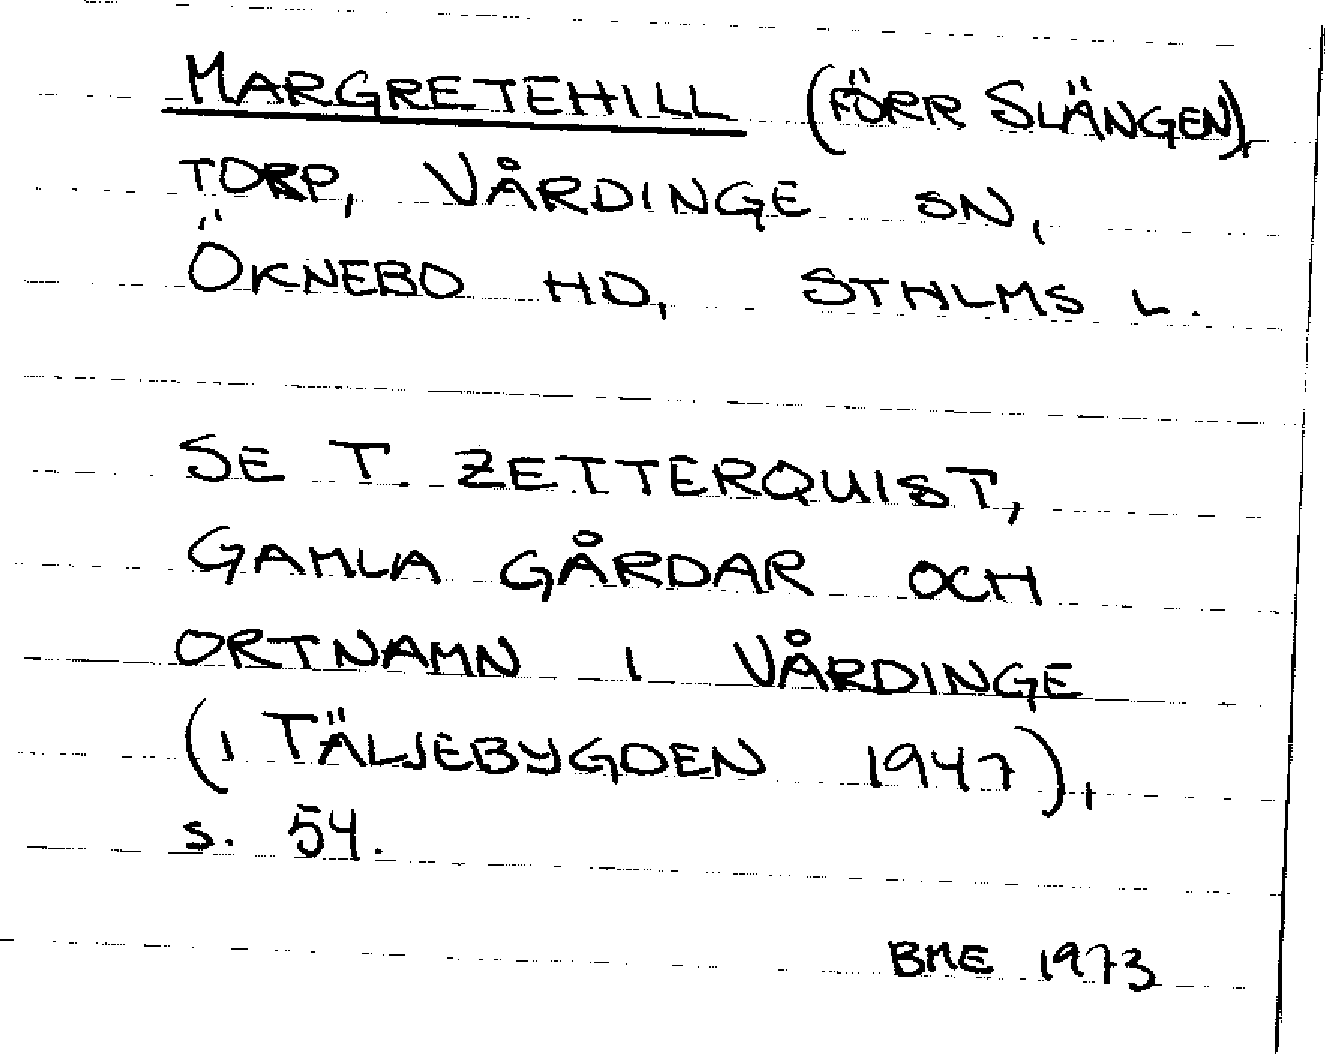 MARGRETEHILL (FÖRR SLÄNGEN),
TORP, VÅRDINGE SN,
ÖKNEBO HD, STHLMS L.
SE T. ZETTERQUIST,
GAMLA GÅRDAR OCH
ORTNAMN I VÅRDINGE
(I TÄLJEBYGDEN 1947),
s. 54.
BME 1973